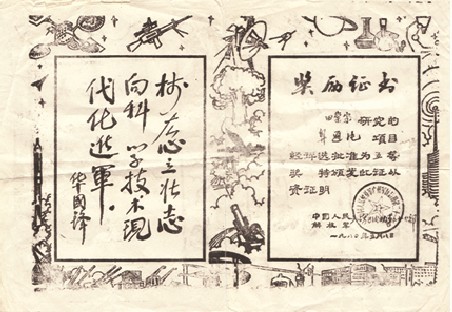 树雄心立壮志
向科学技术现
代化进军。
华国锋
奖励证书
研究的
项目
经评选批准为五等
奖 特颁发此证书以
资证明
中国人民
解放军